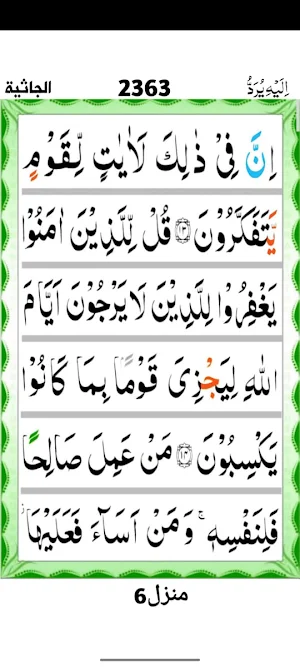 الجاثية 2363 اِلَیْهِ یُرَدُّ
اِنَّ فِیْ ذٰلِكَ لَاٰیٰتٍ لِّقَوْمٍ
یَّتَفَكَّرُوْنَ ﴿۱۳﴾ قُلْ لِّلَّذِیْنَ اٰمَنُوْا
یَغْفِرُوْا لِلَّذِیْنَ لَا یَرْجُوْنَ اَیَّامَ
اللّٰهِ لِیَجْزِیَ قَوْمًۢا بِمَا كَانُوْا
یَكْسِبُوْنَ ﴿۱۴﴾ مَنْ عَمِلَ صَالِحًا
فَلِنَفْسِهٖ ۚ وَ مَنْ اَسَآءَ فَعَلَیْهَا ؗ
منزل 6